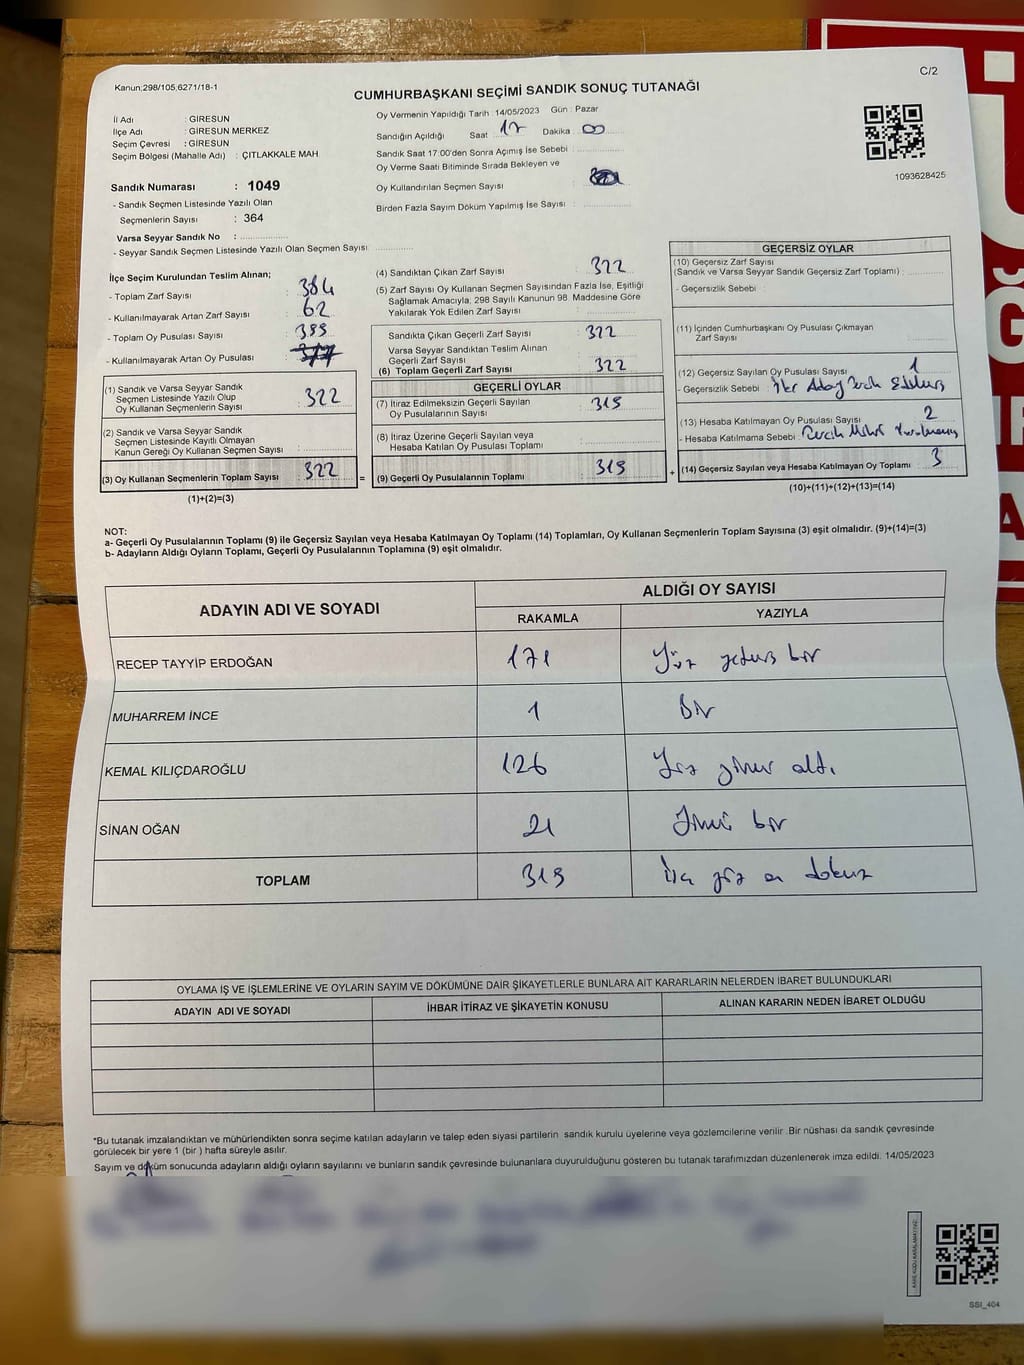 Kanun;298/105,6271/18-1
C/2
CUMHURBAŞKANI SEÇİMİ SANDIK SONUÇ TUTANAĞI
İl Adı : GİRESUN
İlçe Adı : GİRESUN MERKEZ
Seçim Çevresi : GİRESUN
Seçim Bölgesi (Mahalle Adı) : ÇITLAKKALE MAH
Sandık Numarası : 1049
- Sandık Seçmen Listesinde Yazılı Olan
Seçmenlerin Sayısı : 364
Varsa Seyyar Sandık No :
- Seyyar Sandık Seçmen Listesinde Yazılı Olan Seçmen Sayısı :
Oy Vermenin Yapıldığı Tarih : 14/05/2023 Gün : Pazar
Sandığın Açıldığı Saat 17 Dakika 00
Sandık Saat 17:00'den Sonra Açımış İse Sebebi :
Oy Verme Saati Bitiminde Sırada Bekleyen ve
Oy Kullandırılan Seçmen Sayısı :
Birden Fazla Sayım Döküm Yapılmış İse Sayısı :
1093628425
İlçe Seçim Kurulundan Teslim Alınan;
- Toplam Zarf Sayısı : 384
- Kullanılmayarak Artan Zarf Sayısı : 62
- Toplam Oy Pusulası Sayısı :
- Kullanılmayarak Artan Oy Pusulası :
(1) Sandık ve Varsa Seyyar Sandık
Seçmen Listesinde Yazılı Olup
Oy Kullanan Seçmenlerin Sayısı : 322
(2) Sandık ve Varsa Seyyar Sandık
Seçmen Listesinde Kayıtlı Olmayan
Kanun Gereği Oy Kullanan Seçmen Sayısı :
(3) Oy Kullanan Seçmenlerin Toplam Sayısı : 322 =
(1)+(2)=(3)
(4) Sandıktan Çıkan Zarf Sayısı : 322
(5) Zarf Sayısı Oy Kullanan Seçmen Sayısından Fazla İse, Eşitliği
Sağlamak Amacıyla; 298 Sayılı Kanunun 98. Maddesine Göre
Yakılarak Yok Edilen Zarf Sayısı :
Sandıkta Çıkan Geçerli Zarf Sayısı : 322
Varsa Seyyar Sandıktan Teslim Alınan
Geçerli Zarf Sayısı :
(6) Toplam Geçerli Zarf Sayısı : 322
GEÇERLİ OYLAR
(7) İtiraz Edilmeksizin Geçerli Sayılan
Oy Pusulalarının Sayısı : 319
(8) İtiraz Üzerine Geçerli Sayılan veya
Hesaba Katılan Oy Pusulası Toplamı :
(9) Geçerli Oy Pusulalarının Toplamı : 319 +
GEÇERSİZ OYLAR
(10) Geçersiz Zarf Sayısı
(Sandık ve Varsa Seyyar Sandık Geçersiz Zarf Toplamı) :
- Geçersizlik Sebebi :
(11) İçinden Cumhurbaşkanı Oy Pusulası Çıkmayan
Zarf Sayısı :
(12) Geçersiz Sayılan Oy Pusulası Sayısı : 1
- Geçersizlik Sebebi :
(13) Hesaba Katılmayan Oy Pusulası Sayısı : 2
- Hesaba Katılmama Sebebi :
(14) Geçersiz Sayılan veya Hesaba Katılmayan Oy Toplamı : 3
(10)+(11)+(12)+(13)=(14)
NOT:
a- Geçerli Oy Pusulalarının Toplamı (9) ile Geçersiz Sayılan veya Hesaba Katılmayan Oy Toplamı (14) Toplamları, Oy Kullanan Seçmenlerin Toplam Sayısına (3) eşit olmalıdır. (9)+(14)=(3)
b- Adayların Aldığı Oyların Toplamı, Geçerli Oy Pusulalarının Toplamına (9) eşit olmalıdır.
ADAYIN ADI VE SOYADI
ALDIĞI OY SAYISI
RAKAMLA YAZIYLA
RECEP TAYYİP ERDOĞAN 171 Yüz yetmiş bir
MUHARREM İNCE 1 Bir
KEMAL KILIÇDAROĞLU 126 Yüz yirmi altı
SİNAN OĞAN 21 Yirmi bir
TOPLAM 319 Üç yüz on dokuz
OYLAMA İŞ VE İŞLEMLERİNE VE OYLARIN SAYIM VE DÖKÜMÜNE DAİR ŞİKAYETLERLE BUNLARA AİT KARARLARIN NELERDEN İBARET BULUNDUKLARI
ADAYIN ADI VE SOYADI İHBAR İTİRAZ VE ŞİKAYETİN KONUSU ALINAN KARARIN NEDEN İBARET OLDUĞU
*Bu tutanak imzalandıktan ve mühürlendikten sonra seçime katılan adayların ve talep eden siyasi partilerin sandık kurulu üyelerine veya gözlemcilerine verilir .Bir nüshası da sandık çevresinde
görülecek bir yere 1 (bir ) hafta süreyle asılır.
Sayım ve döküm sonucunda adayların aldığı oyların sayılarını ve bunların sandık çevresinde bulunanlara duyurulduğunu gösteren bu tutanak tarafımızdan düzenlenerek imza edildi. 14/05/2023
SSI_404